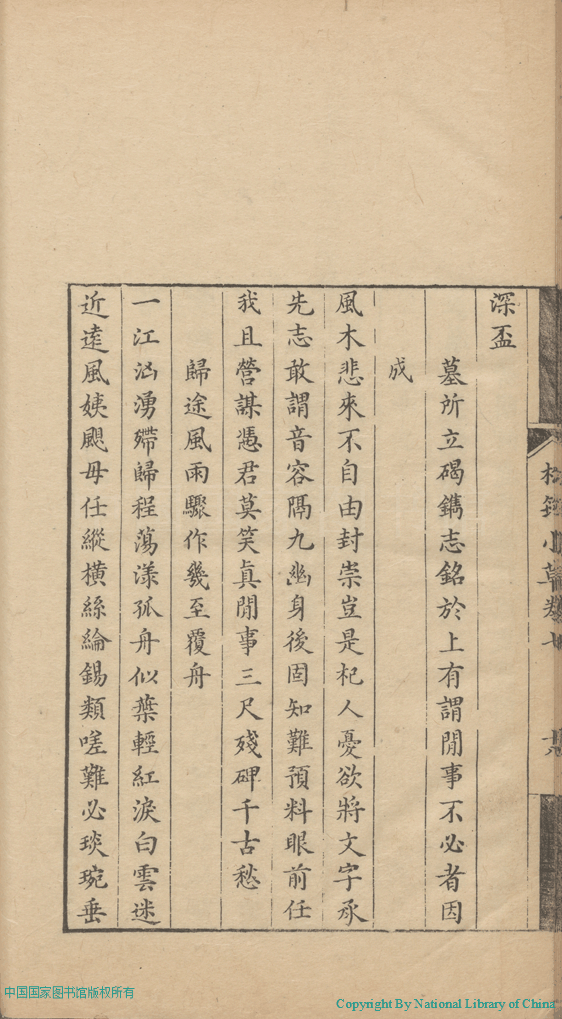 深盃
墓所立碣鐫志銘於上有謂閒事不必者因
成
風木悲來不自由封崇豈是杞人憂欲將文字承
先志敢謂音容隔九幽身後固知難預料眼前任
我且營謀慿君莫笑眞閒事三尺殘碑千古愁
歸途風雨驟作幾至覆舟
一江洶湧殢歸程蕩漾孤舟似葉輕紅淚白雲迷
近遠風姨颶毋任縱橫絲綸錫類嗟難必琰琬垂
中国国家图书馆版权所有
Copyright By National Library of China